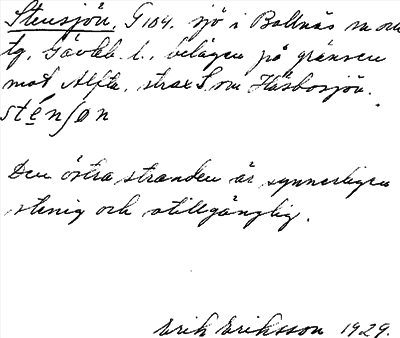 Stensjön, G 104. sjö i Bollnäs sn och
tg, Gävleb. l., belägen på gränsen
mot Alfta, strax S om Häsbosjön.
sténʃøn
Den östra stranden är synnerligen
stenig och otillgänglig.
Erik Eriksson 1929.